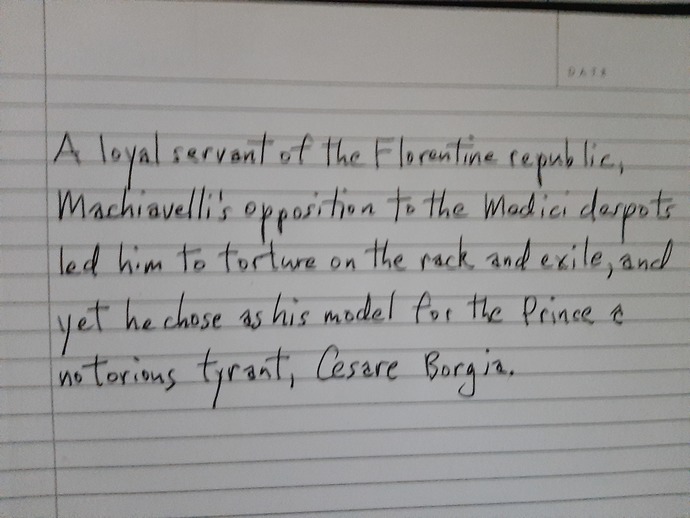 DATE
A loyal servant of the Florentine republic,
Machiavelli's opposition to the Medici despots
led him to torture on the rack and exile, and
yet he chose as his model for the Prince a
notorious tyrant, Cesare Borgia.